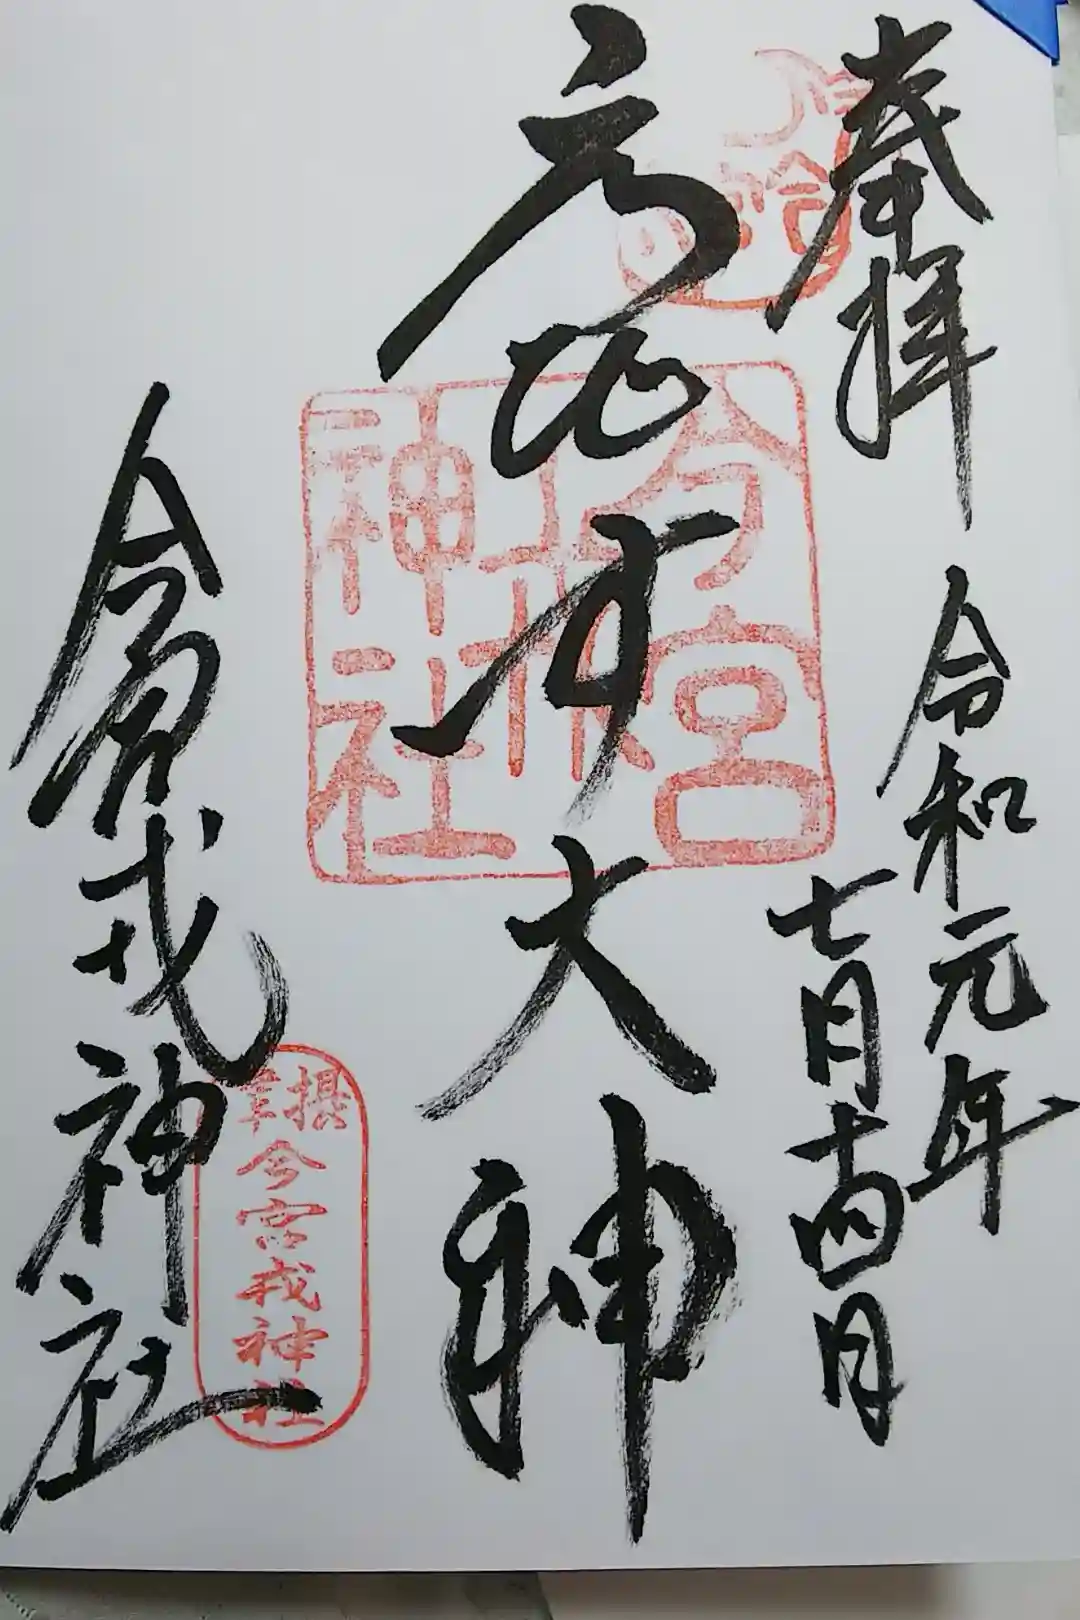 奉拝
令和元年
七月十四日
えびす大神
今宮戎神社
今宮
戎
神社
摂津
今宮戎神社